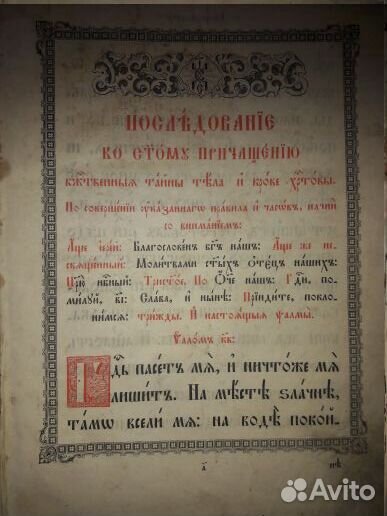 ПОСЛѢДОВАНІЕ
КО СТ҃ОМУ ПРИЧАЩЕНІЮ
БЖ҃ТВЕННЫѦ ТАЙНЫ ТѢЛА И КРОВЕ ХРТ҇ОВЫ.
По совершенїи оуказаннагѡ правила и часѡвъ, начнӣ
со вниманїемъ:
Аще їерей: Благословенъ бг҃ъ нашъ: Аще же не
священный: Молитвами ст҃ыхъ ѻтецъ нашихъ:
Цр҃ю нбный: Трист҃ое. По Ѻ҆́ч҃е нашъ: Гд҇и, по-
милуй, в҃і: Слава, и нынѣ: Прїидите, покло-
нимсѧ: трижды. И настоѧщыѧ ѱалмы.
Ѱаломъ к҃в:
Гд҇ь пасетъ мѧ, и ничтоже мѧ
лишитъ. На мѣстѣ злачнѣ,
тамѡ всели мѧ: на водѣ покой-
а҃
нѣ
Avito